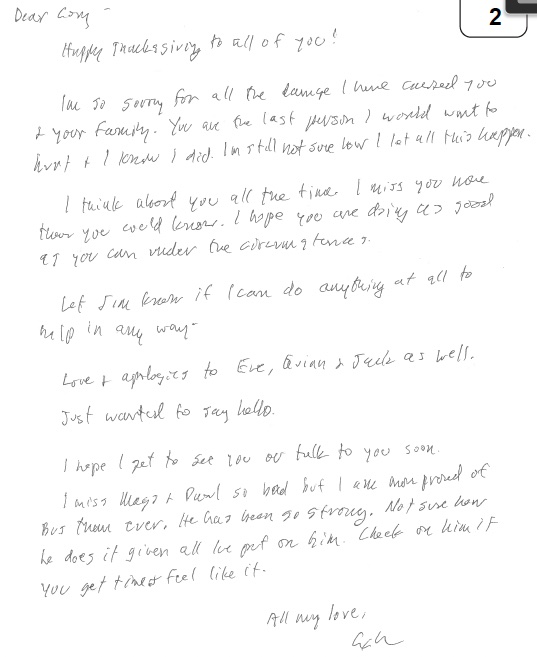 2
Dear Cory -
Happy Thanksgiving to all of you!
Im so sorry for all the damage I have caused you
& your family. You are the last person I would want to
hurt & I know I did. Im still not sure how I let all this happen.
I think about you all the time. I miss you more
than you could know. I hope you are doing as good
as you can under the circumstances.
Let Jim know if I can do anything at all to
help in any way-
Love & apologies to Eve, & Jack as well.
Just wanted to say hello.
I hope I get to see you or talk to you soon.
I miss Mags & Paul so bad but I am more proud of
Bus than ever. He has been so strong. Not sure how
he does it given all Ive put on him. Check on him if
you get time & feel like it.
All my love,